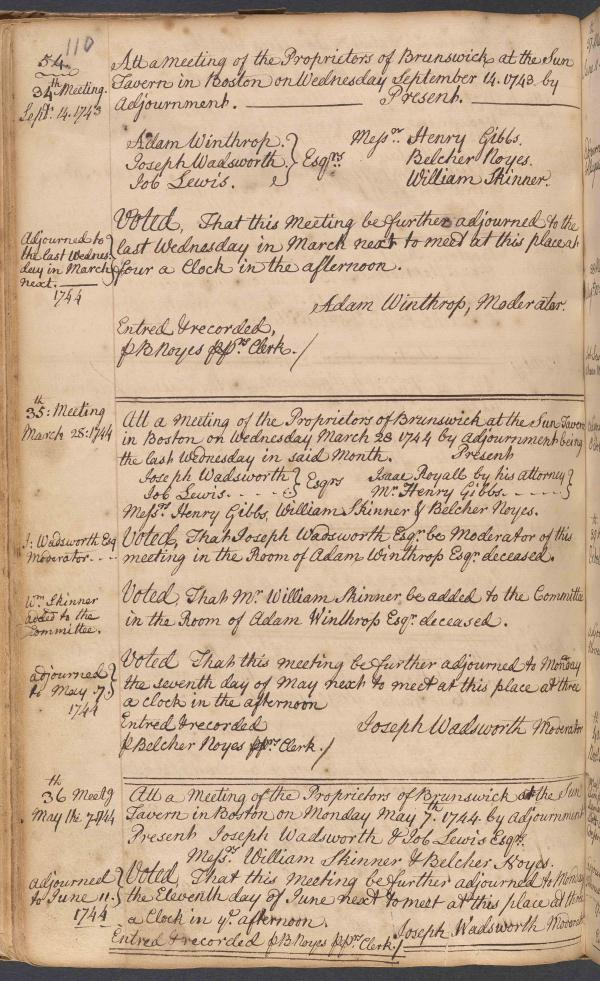 110
54.
34th Meeting.
Septr. 14. 1743
Att a meeting of the Proprietors of Brunswick at the Sun
Tavern in Boston on Wednesday September 14. 1743 by
adjournment. Present.
Adam Winthrop.
Joseph Wadsworth. Esqrs
Job Lewis.
Messrs. Henry Gibbs.
Belcher Noyes.
William Skinner.
Adjourned to
the last Wednes-
day in March
next.
1744
Voted, That this Meeting be further adjourned to the
last Wednesday in March next to meet at this place at
four a Clock in the afternoon.
Adam Winthrop, Moderator.
Entred & recorded,
p B Noyes pprs Clerk.
35th: Meeting
March 28: 1744
Att a Meeting of the Proprietors of Brunswick at the Sun Tavern
in Boston on Wednesday March 28 1744 by adjournment being
the last Wednesday in said Month. Present
Joseph Wadsworth Esqrs Isaac Royall by his attorney
Job Lewis. Mr. Henry Gibbs.
Messrs. Henry Gibbs, William Skinner & Belcher Noyes.
J: Wadsworth Esq
Moderator.
Voted, That Joseph Wadsworth Esqr. be Moderator of this
meeting in the Room of Adam Winthrop Esqr. deceased.
Wm. Skinner
added to the
Committee.
Voted, That Mr. William Skinner, be added to the Committee
in the Room of Adam Winthrop Esqr. deceased.
adjourned
to May 7.
1744
Voted That this meeting be further adjourned to Monday
the seventh day of May next to meet at this place at three
a clock in the afternoon
Entred & recorded Joseph Wadsworth Moderator
p Belcher Noyes pprs Clerk.
36th Meetg
May the 7. 1744
Att a Meeting of the Proprietors of Brunswick at the Sun
Tavern in Boston on Monday May 7th. 1744. by adjournment
Present Joseph Wadsworth & Job Lewis Esqrs.
Messrs. William Skinner & Belcher Noyes.
adjourned
to June 11.
1744
Voted That this Meeting be further adjourned to Monday
the Eleventh day of June next to meet at this place at three
a Clock in ye. afternoon. Joseph Wadsworth Moderator
Entred & recorded p B Noyes pprs Clerk.